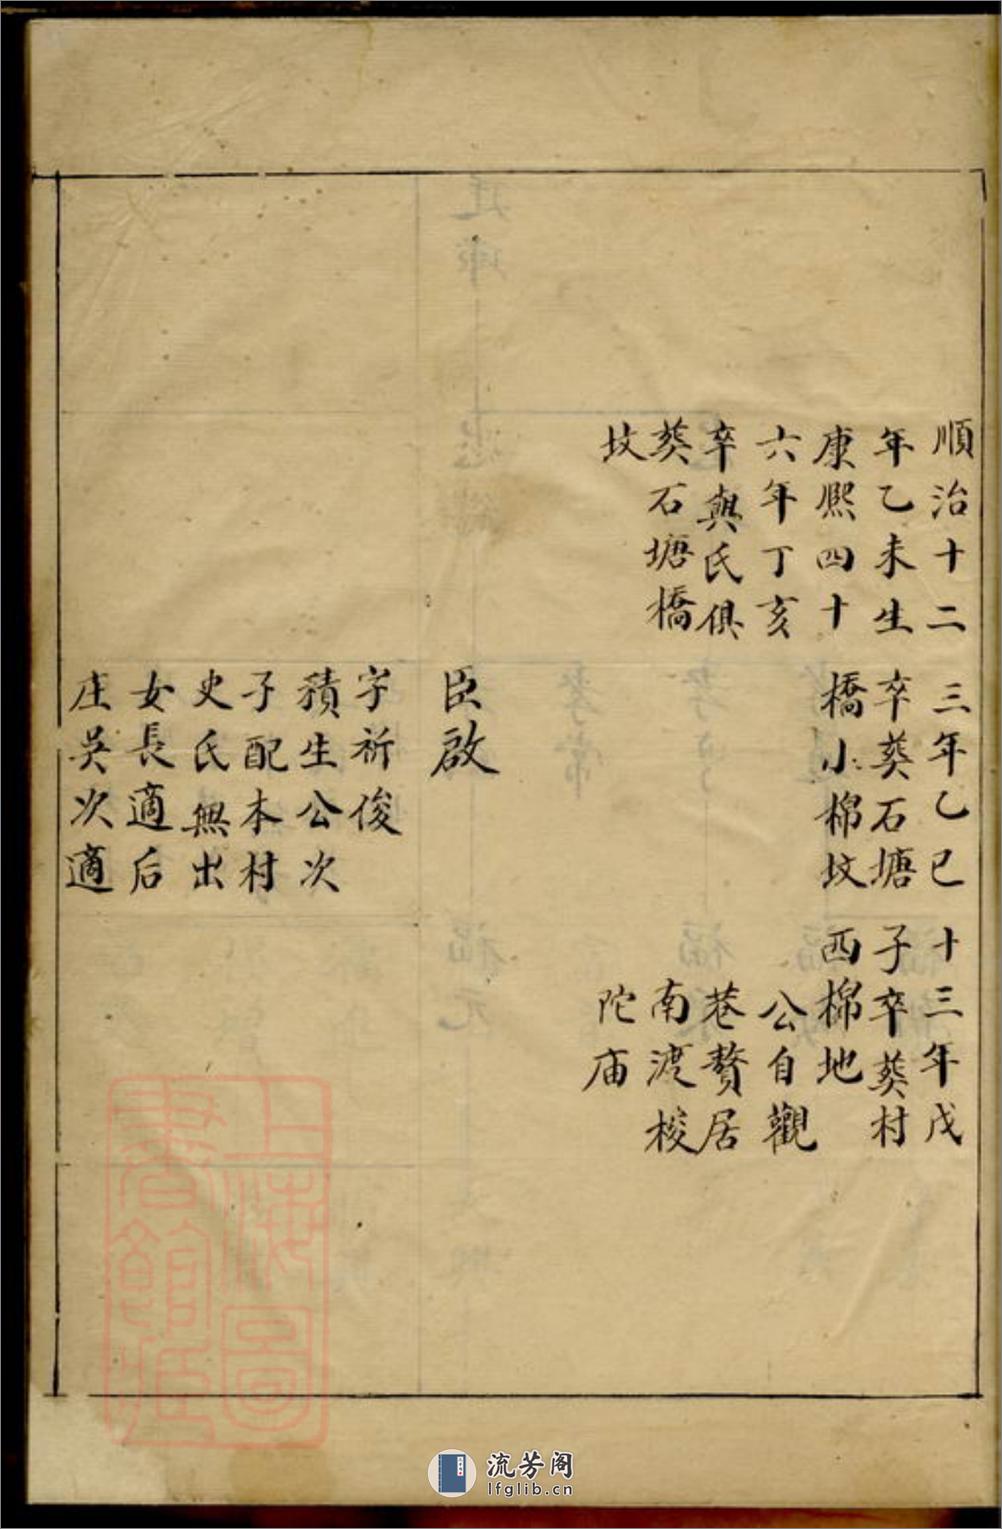 順治十二
年乙未生
康熙四十
六年丁亥
卒與氏俱
葵石塘橋
坟
三年乙巳
卒葵石塘
橋小棉坟
臣啟
字祈俊
積生公次
子配本村
史氏無出
女長適后
庄吳次適
十三年戊
子卒葵村
西棉地
公自觀
巷贅居
南渡梭
陀庙
上海圖
書館藏
流芳阁
lfglib.cn